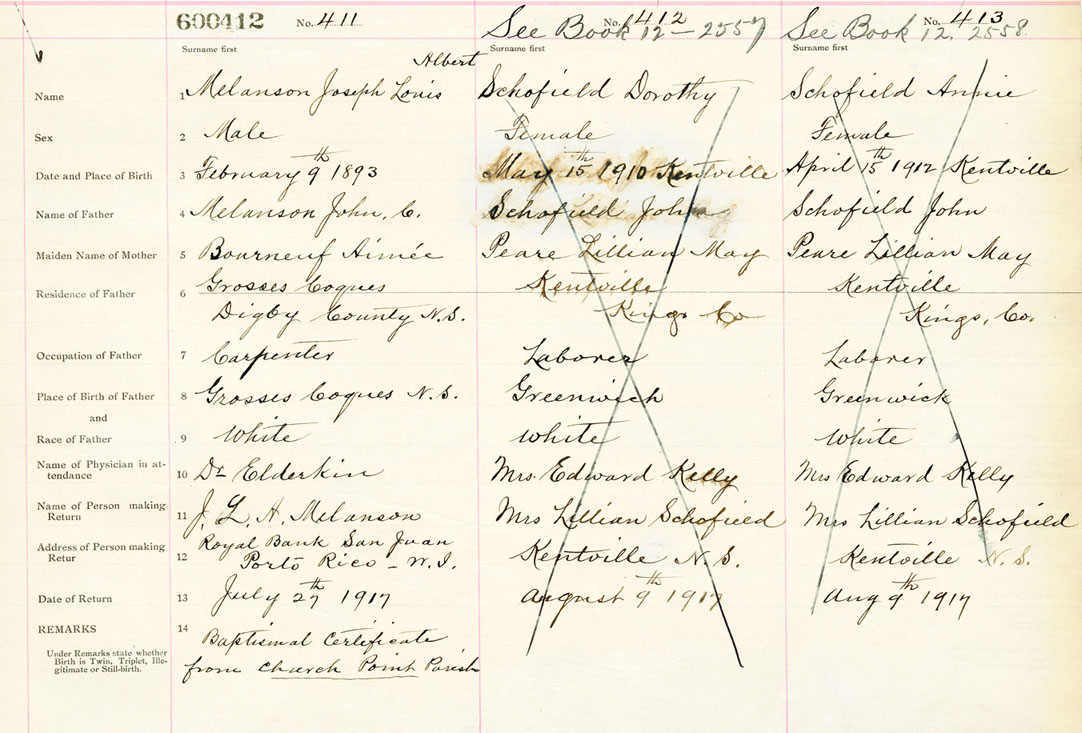 600412 No. 411 No. 412 No. 413
See Book 12 - 2557 See Book 12. 2558.
Surname first Surname first Surname first
Albert
Name 1 Melanson Joseph Louis Schofield Dorothy Schofield Annie
Sex 2 Male Female Female
Date and Place of Birth 3 February 9th 1893 May 15th 1910 Kentville April 15th 1912 Kentville
Name of Father 4 Melanson John, C. Schofield John Schofield John
Maiden Name of Mother 5 Bourneuf Aimée Peare Lillian May Peare Lillian May
Residence of Father 6 Grosses Coques Kentville Kentville
Digby County N.S. Kings Co Kings, Co.
Occupation of Father 7 Carpenter Laborer Laborer
Place of Birth of Father 8 Grosses Coques N.S. Greenwich Greenwick
and
Race of Father 9 White White White
Name of Physician in at-
tendance 10 Dr Elderkin Mrs. Edward Kelly Mrs Edward Kelly
Name of Person making
Return 11 J. L. A. Melanson Mrs Lillian Schofield Mrs Lillian Schofield
Address of Person making Royal Bank San Juan
Retur 12 Porto Rico - W.I. Kentville N.S. Kentville N.S.
Date of Return 13 July 27th 1917 August 9th 1917 Aug 9th 1917
REMARKS 14 Baptismal Certificate
Under Remarks state whether
Birth is Twin, Triplet, Ille-
gitimate or Still-birth.
from Church Point Parish